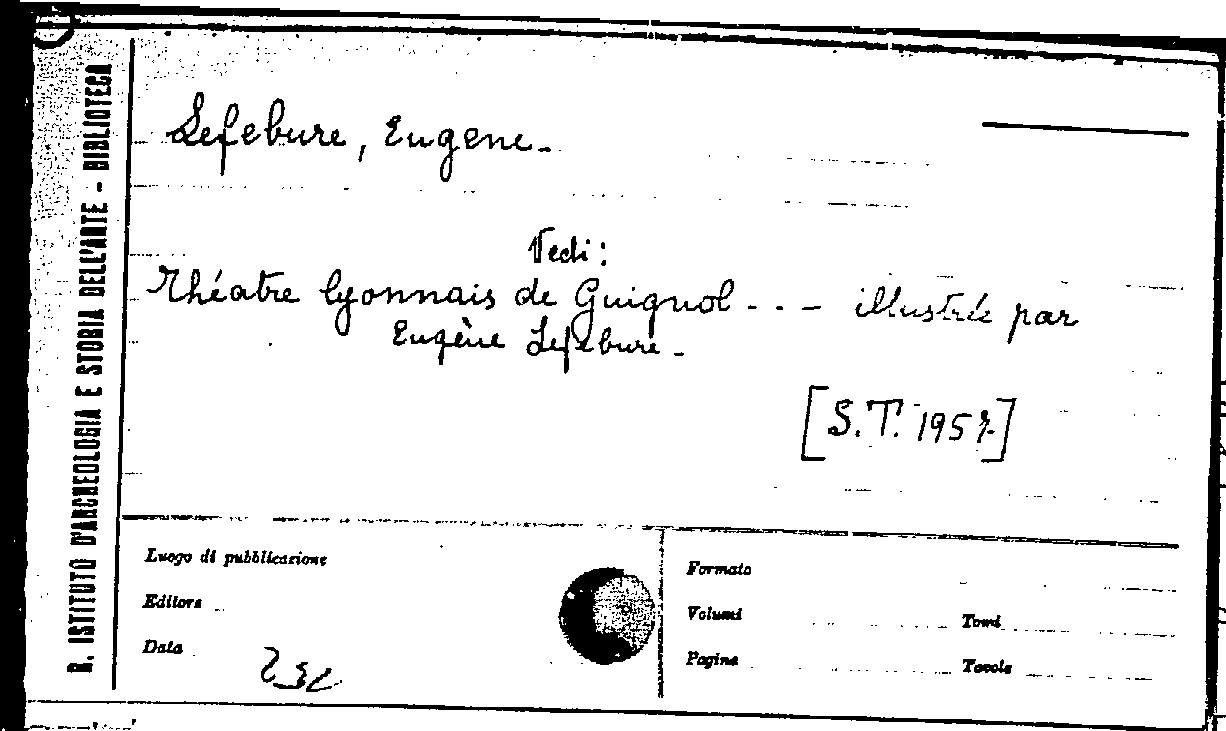 R. ISTITUTO D'ARCHEOLOGIA E STORIA DELL'ARTE - BIBLIOTECA
Lefebure, Eugene.
Vedi:
Théatre lyonnais de Guignol - - - illustré par
Eugène Lefebure.
[S.T. 1957]
Luogo di pubblicazione
Editore
Data
Formato
Volumi Tomi
Pagine Tavole